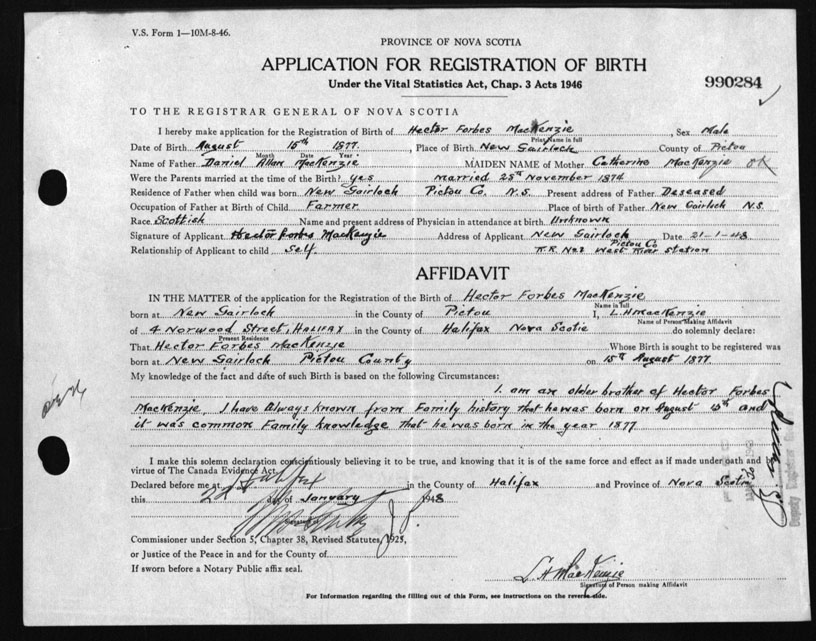 V.S. Form 1—10M-8-46.
PROVINCE OF NOVA SCOTIA
APPLICATION FOR REGISTRATION OF BIRTH
Under the Vital Statistics Act, Chap. 3 Acts 1946
990284
TO THE REGISTRAR GENERAL OF NOVA SCOTIA
I hereby make application for the Registration of Birth of Hector Forbes MacKenzie, Sex Male
Print Name in full
Date of Birth August 15th 1877. , Place of Birth New Gairloch County of Pictou
Month Date Year
Name of Father Daniel Allan MacKenzie MAIDEN NAME of Mother Catherine MacKenzie OK
Were the Parents married at the time of the Birth? yes married 25th November 1874
Residence of Father when child was born New Gairloch Pictou Co. N.S. Present address of Father Deseased
Occupation of Father at Birth of Child Farmer Place of birth of Father New Gairloch N.S.
Race Scottish Name and present address of Physician in attendance at birth Unknown
Signature of Applicant Hector Forbes MacKenzie Address of Applicant New Gairloch Date 21-1-48
Pictou Co
Relationship of Applicant to child Self. R.R. No2 West River Station
AFFIDAVIT
IN THE MATTER of the application for the Registration of Birth of Hector Forbes MacKenzie
Name in full
born at New Gairloch in the County of Pictou I, L.H MacKenzie
Name of Person Making Affidavit
of 4 Norwood Street, Halifax in the County of Halifax Nova Scotia do solemnly declare:
Present Residence
That Hector Forbes MacKenzie Whose birth is sought to be registered was
born at New Gairloch Pictou County on 15th August 1877
My knowledge of the fact and date of such Birth is based on the following Circumstances:
I. am an older brother of Hector Forbes
MacKenzie. I have always known from Family history that he was born on August 15th and
it was common Family knowledge that he was born in the year 1877
I make this solemn declaration conscientiously believing it to be true, and knowing that it is of the same force and effect as if made under oath and by
virtue of The Canada Evidence Act.
Declared before me at Halifax in the County of Halifax and Province of Nova Scotia
this 22 day of January 1948
Commissioner under Section 5, Chapter 38, Revised Statutes, 1923,
or Justice of the Peace in and for the County of
If sworn before a Notary Public affix seal.
L H MacKenzie
Signature of Person making Affidavit
For Information regarding the filling out of this Form, see instructions on the reverse side.